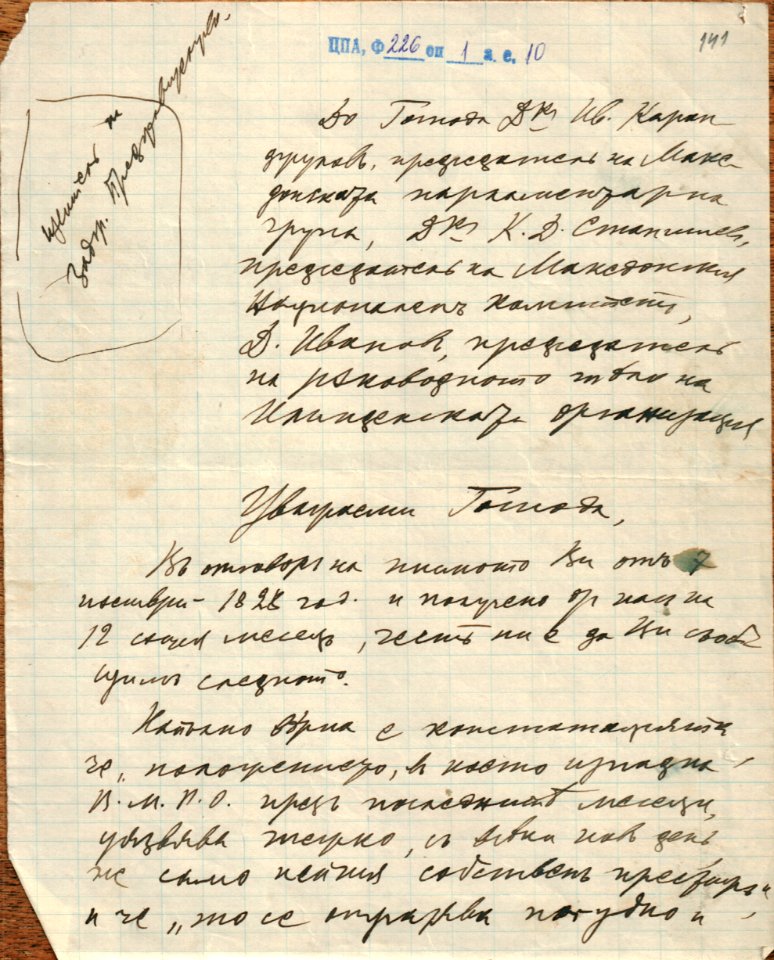 ЦПА, Ф 226 оп 1 а. е. 10
141
задгр. Представителъ.
До Господа Д-ръ Ив. Каран-
джуловъ, председатель на Маке-
донската парламентарна
група, Д-ръ К. Д. Станишевъ,
председатель на Македонския
Националенъ комитетъ,
Д. Ивановъ, председатель
на рѫководното тѣло на
Илинденската организация
Уважаеми Господа,
Въ отговоръ на писмото Ви отъ 7
ноемврий 1828 год. и получено от нас на
12 същия месецъ, честь ни е да Ви съоб-
щимъ следното.
Напълно вѣрна е констатацията
че „положението, в което изпадна
В.М.Р.О. презъ последнитѣ месеци,
уязвява жестоко, съ всѣки новъ день
не само нейния собственъ престижъ"
и че „то се отразява пагубно и